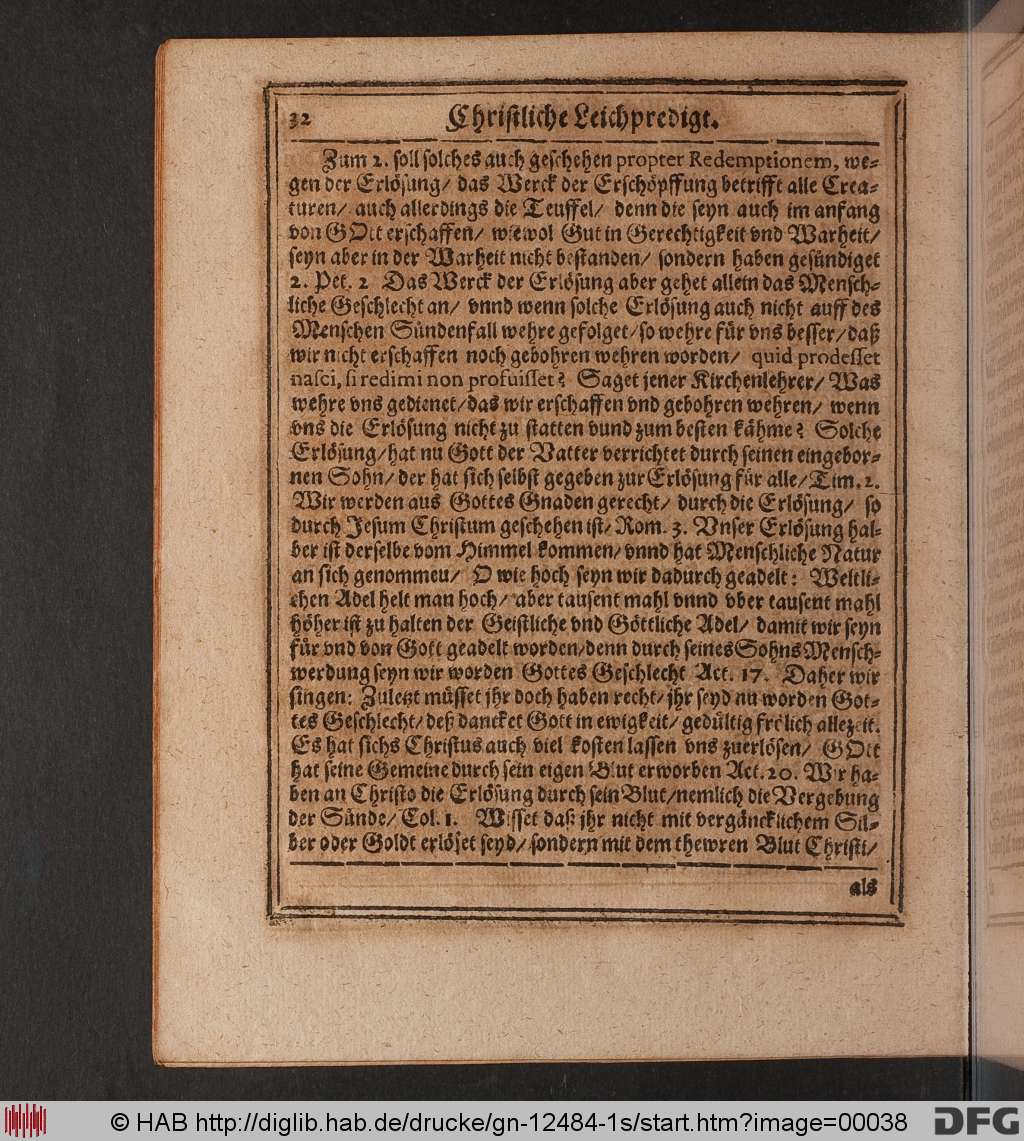 32 Christliche Leichpredigt.
Zum 2. soll solches auch geschehen propter Redemptionem, we-
gen der Erlösung/ das Werck der Erschöpffung betrifft alle Crea-
turen/ auch allerdings die Teuffel/ denn die seyn auch im anfang
von GOtt erschaffen/ wiewol Gut in Gerechtigkeit vnd Warheit/
seyn aber in der Warheit nicht bestanden/ sondern haben gesündiget
2. Pet. 2 Das Werck der Erlösung aber gehet allein das Mensch-
liche Geschlecht an/ vnnd wenn solche Erlösung auch nicht auff des
Menschen Sündenfall wehre gefolget/ so wehre für vns besser/ daß
wir nicht erschaffen noch gebohren wehren worden/ quid prodesset
nasci, si redimi non profuisset? Saget jener Kirchenlehrer/ Was
wehre vns gedienet/ das wir erschaffen vnd gebohren wehren/ wenn
vns die Erlösung nicht zu statten vund zum besten kähme? Solche
Erlösung/ hat nu Gott der Vatter verrichtet durch seinen eingebor-
nen Sohn/ der hat sich selbst gegeben zur Erlösung für alle/ Tim. 2.
Wir werden aus Gottes Gnaden gerecht/ durch die Erlösung/ so
durch Jesum Christum geschehen ist/ Rom. 3. Vnser Erlösung hal-
ber ist derselbe vom Himmel kommen/ vnnd hat Menschliche Natur
an sich genommeu/ O wie hoch seyn wir dadurch geadelt: Weltli-
chen Adel helt man hoch/ aber tausent mahl vnnd vber tausent mahl
höher ist zu halten der Geistliche vnd Göttliche Adel/ damit wir seyn
für vnd von Gott geadelt worden/ denn durch seines Sohns Mensch-
werdung seyn wir worden Gottes Geschlecht Act. 17. Daher wir
singen: Zuletzt müsset jhr doch haben recht/ jhr seyd nu worden Got-
tes Geschlecht/ deß dancket Gott in ewigkeit/ gedültig frölich allezeit.
Es hat sichs Christus auch viel kosten lassen vns zuerlösen/ GOtt
hat seine Gemeine durch sein eigen Blut erworben Act. 20. Wir ha-
ben an Christo die Erlösung durch sein Blut/ nemlich die Vergebung
der Sünde/ Col. 1. Wisset daß jhr nicht mit vergäncklichem Sil-
ber oder Goldt erlöset seyd/ sondern mit dem thewren Blut Christi/
als
© HAB http://diglib.hab.de/drucke/gn-12484-1s/start.htm?image=00038 DFG